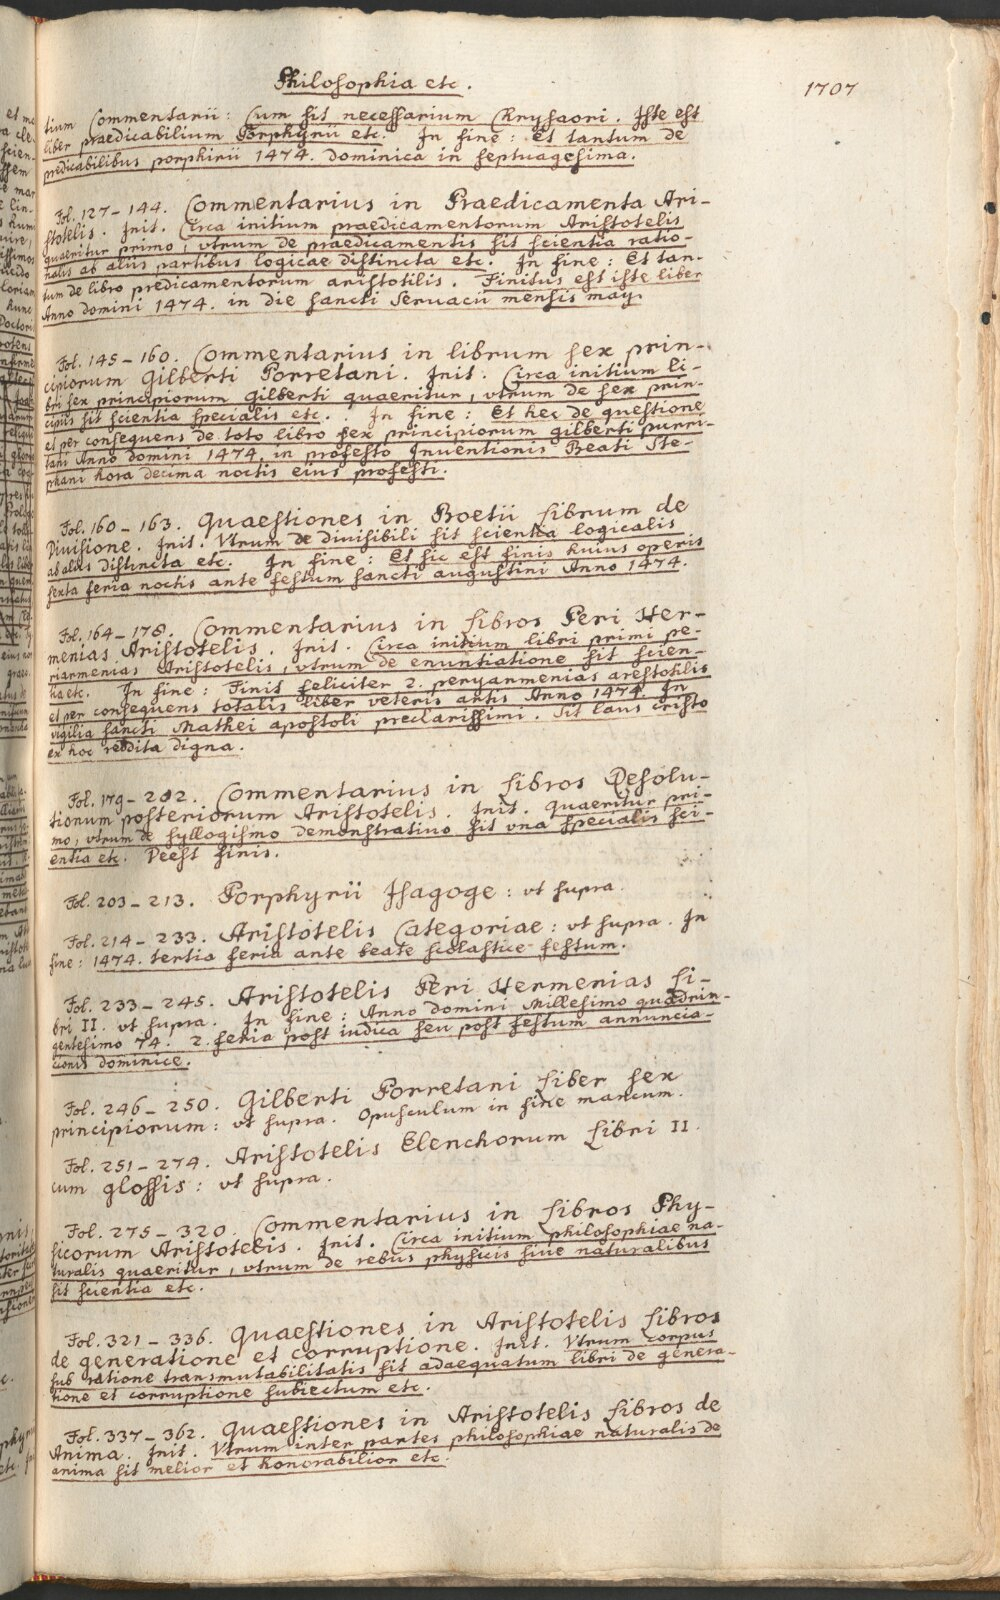 Philosophia etc.
1707
tium Commentarii: Cum sit necessarium Chrysaori. Iste est
liber praedicabilium Porphyrii etc. In fine: Et tantum de
predicabilibus porphirii 1474. dominica in septuagesima.
Fol. 127-144. Commentarius in Praedicamenta Ari-
stotelis. Init. Circa initium praedicamentorum Aristotelis
quaeritur primo, vtrum de praedicamentis sit scientia ratio-
nalis ab aliis partibus logicae distincta etc. In fine: Et tan-
tum de libro predicamentorum aristotilis. Finitus est iste liber
Anno domini 1474. in die sancti Servacii mensis may.
Fol. 145-160. Commentarius in librum sex prin-
cipiorum Gilberti Porretani. Init. Circa initium li-
bri sex principiorum Gilberti quaeritur, vtrum de sex prin-
cipiis sit scientia specialis etc. In fine: Et hec de questione
et per consequens de toto libro sex principiorum gilberti purri-
tani Anno domini 1474. in profesto Inventionis Beati Ste-
phani hora decima noctis eius profesti.
Fol. 160-163. Quaestiones in Boetii Librum de
Divisione. Init. Vtrum de divisibili sit scientia logicalis
ab aliis distincta etc. In fine: Et sic est finis huius operis
sexta feria noctis ante festum sancti augustini Anno 1474.
Fol. 164-178. Commentarius in Libros Peri Her-
menias Aristotelis. Init. Circa initium libri primi pe-
riarmenias Aristotelis, vtrum de enuntiatione sit scien-
tia etc. In fine: Finit feliciter 2. peryarmenias arestotilis
et per consequens totalis liber veteris artis Anno 1474. In
vigilia sancti Mathei apostoli preclarissimi. Sit laus cristo
ex hoc reddita digna.
Fol. 179-202. Commentarius in Libros Resolu-
tionum posteriorum Aristotelis. Init. Quaeritur pri-
mo, vtrum de syllogismo demonstratiuo sit vna specialis sci-
entia etc. Deest finis.
Fol. 203-213. Porphyrii Isagoge: vt supra.
Fol. 214-233. Aristotelis Categoriae: vt supra. In
fine: 1474. tertia feria ante beate scolastice festum.
Fol. 233-245. Aristotelis Peri Hermenias Li-
bri II. vt supra. In fine: Anno domini Millesimo quadrin-
gentesimo 74. 2. feria post iudica seu post festum annuncia-
cionis dominice.
Fol. 246-250. Gilberti Porretani Liber sex
principiorum: vt supra. Opusculum in fine mancum.
Fol. 251-274. Aristotelis Elenchorum Libri II.
cum glossis: vt supra.
Fol. 275-320. Commentarius in Libros Phy-
sicorum Aristotelis. Init. Circa initium philosophiae na-
turalis quaeritur, vtrum de rebus physicis siue naturalibus
sit scientia etc.
Fol. 321-336. Quaestiones in Aristotelis Libros
de generatione et corruptione. Init. Vtrum corpus
sub ratione transmutabilitatis sit adaequatum libri de genera-
tione et corruptione subiectum etc.
Fol. 337-362. Quaestiones in Aristotelis Libros de
Anima. Init. Vtrum inter partes philosophiae naturalis de
anima sit melior et honorabilior etc.